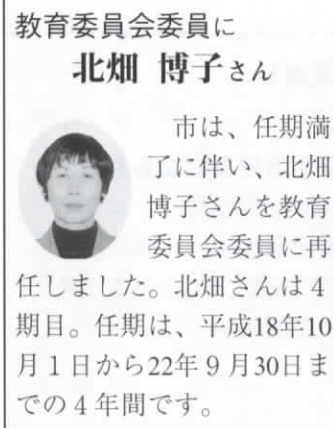 教育委員会委員に
北畑 博子さん
市は、任期満
了に伴い、北畑
博子さんを教育
委員会委員に再
任しました。北畑さんは４
期目。任期は、平成18年10
月１日から22年９月30日ま
での４年間です。